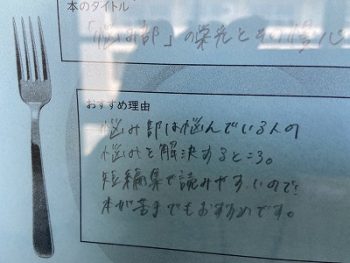 本のタイトル
「悩み部」の栄光と
おすすめ理由
悩み部は悩んでいる人の
悩みを解決するところ。
短編集で読みやすいので
本が苦手でもおすすめです。